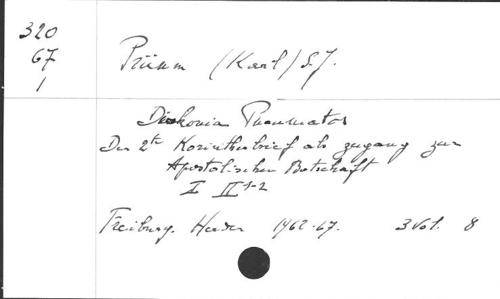 320
67
1
Prümm (Karl) S.J.
Diakonia Pneumatos
Der 2te Korintherbrief als zugang zur
Apostolischen Botschaft
I II 1-2
Freiburg. Herder 1962-67. 3 vol. 8